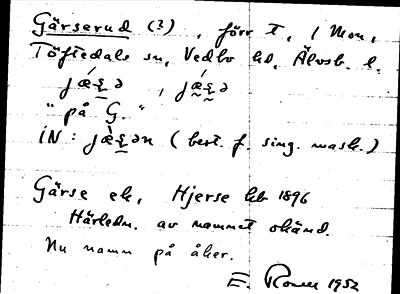 Gärserud (?), förr t, 1 Mon,
Töftedals sn, Vedbo hd, Älvsb. l.
jǽʂə, jǽʂə
"på G."
iN: jæ̀ʂən (best. f. sing. mask.)
Gärse ek, Hjerse hb 1896
Härledn. av namnet okänd.
Nu namn på åker.
E. 1952